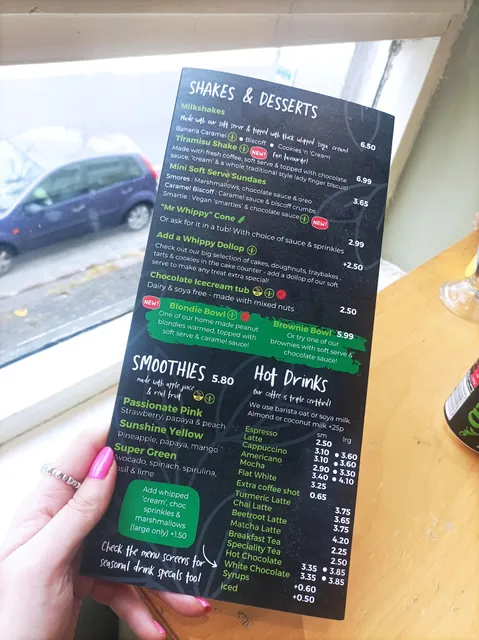 SHAKES & DESSERTS
Milkshakes 6.50
Made with our soft serve & topped with thick whipped soya 'cream'
Banana Caramel • Biscoff • Cookies 'n 'Cream'
Tiramisu Shake NEW! Fan favourite! 6.99
Made with fresh coffee, soft serve & topped with chocolate
sauce, 'cream' & a whole traditional style lady finger biscuit!
Mini Soft Serve Sundaes 3.65
Smores : Marshmallows, chocolate sauce & oreo
Caramel Biscuit : Caramel sauce & biscoff crumbs
Smartie : Vegan 'smarties' & chocolate sauce NEW!
"Mr Whippy" Cone 2.99
Or ask for it in a tub! With choice of sauce & sprinkles
Add a Whippy Dollop +2.50
Check out our big selection of cakes, doughnuts, traybakes,
tarts & cookies in the cake counter - add a dollop of our soft
serve to make any treat extra special!
Chocolate Icecream tub 2.50
Dairy & soya free - made with mixed nuts
NEW! Blondie Bowl
One of our home made peanut
blondies warmed, topped with
soft serve & caramel sauce!
Brownie Bowl 5.99
Or try one of our
brownies with soft serve &
chocolate sauce!
SMOOTHIES 5.80
made with apple juice
& real fruit
Passionate Pink
Strawberry, papaya & peach
Sunshine Yellow
Pineapple, papaya, mango
Super Green
Avocado, spinach, spirulina,
basil & lime
Add whipped
'cream', choc
sprinkles &
marshmallows
(large only) +1.50
Check the menu screens for
seasonal drink specials too!
Hot Drinks
Our coffee is triple certified!
We use barista oat or soya milk,
Almond or coconut milk +25p
sm lrg
Espresso 2.50
Latte 3.10 • 3.60
Cappuccino 3.10 • 3.60
Americano 2.90 • 3.30
Mocha 3.40 • 4.10
Flat White 3.25
Extra coffee shot 0.65
Turmeric Latte 3.75
Chai Latte 3.65
Beetroot Latte 3.75
Matcha Latte 4.20
Breakfast Tea 2.25
Speciality Tea 2.50
Hot Chocolate 3.35 • 3.85
White Chocolate 3.35 • 3.85
Syrups +0.60
Iced +0.50